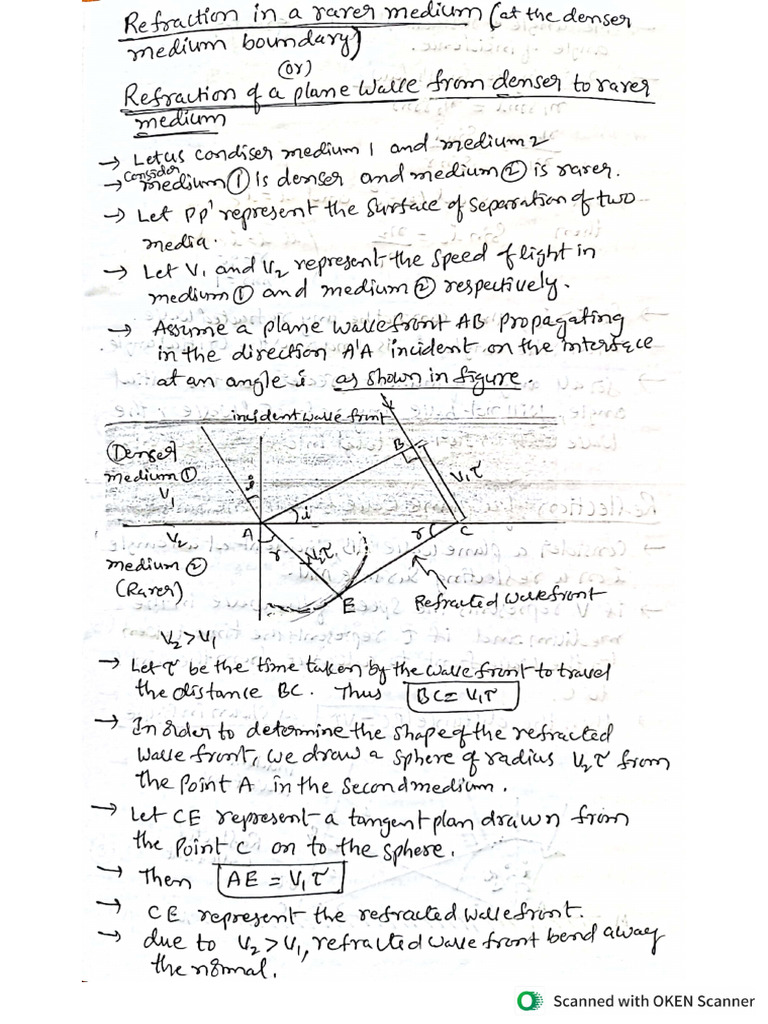 Refraction in a rarer medium (at the denser
medium boundary)
(or)
Refraction of a plane wave from denser to rarer
medium
→ Let us condiser medium 1 and medium 2
→ Consider medium ① is denser and medium ② is rarer.
→ Let PP' represent the surface of separation of two
media.
→ Let V₁ and V₂ represent the speed of light in
medium ① and medium ② respectively.
→ Assume a plane wavefront AB propagating
in the direction A'A incident on the interface
at an angle i as shown in figure.
incident wave front
(Denser
medium ①
V₁
i
i
B
V₁τ
A
r
C
V₂
medium ②
(Rarer)
r
V₂τ
E
Refracted wavefront
V₂ > V₁
→ Let τ be the time taken by the wave front to travel
the distance BC. Thus BC = V₁τ
→ In order to determine the shape of the refracted
wave front, we draw a sphere of radius V₂τ from
the point A in the second medium.
→ Let CE represent a tangent plan drawn from
the point C on to the sphere.
→ Then AE = V₁τ
→ CE represent the refracted wave front.
→ due to V₂ > V₁, refracted wave front bend away
the normal.
Scanned with OKEN Scanner